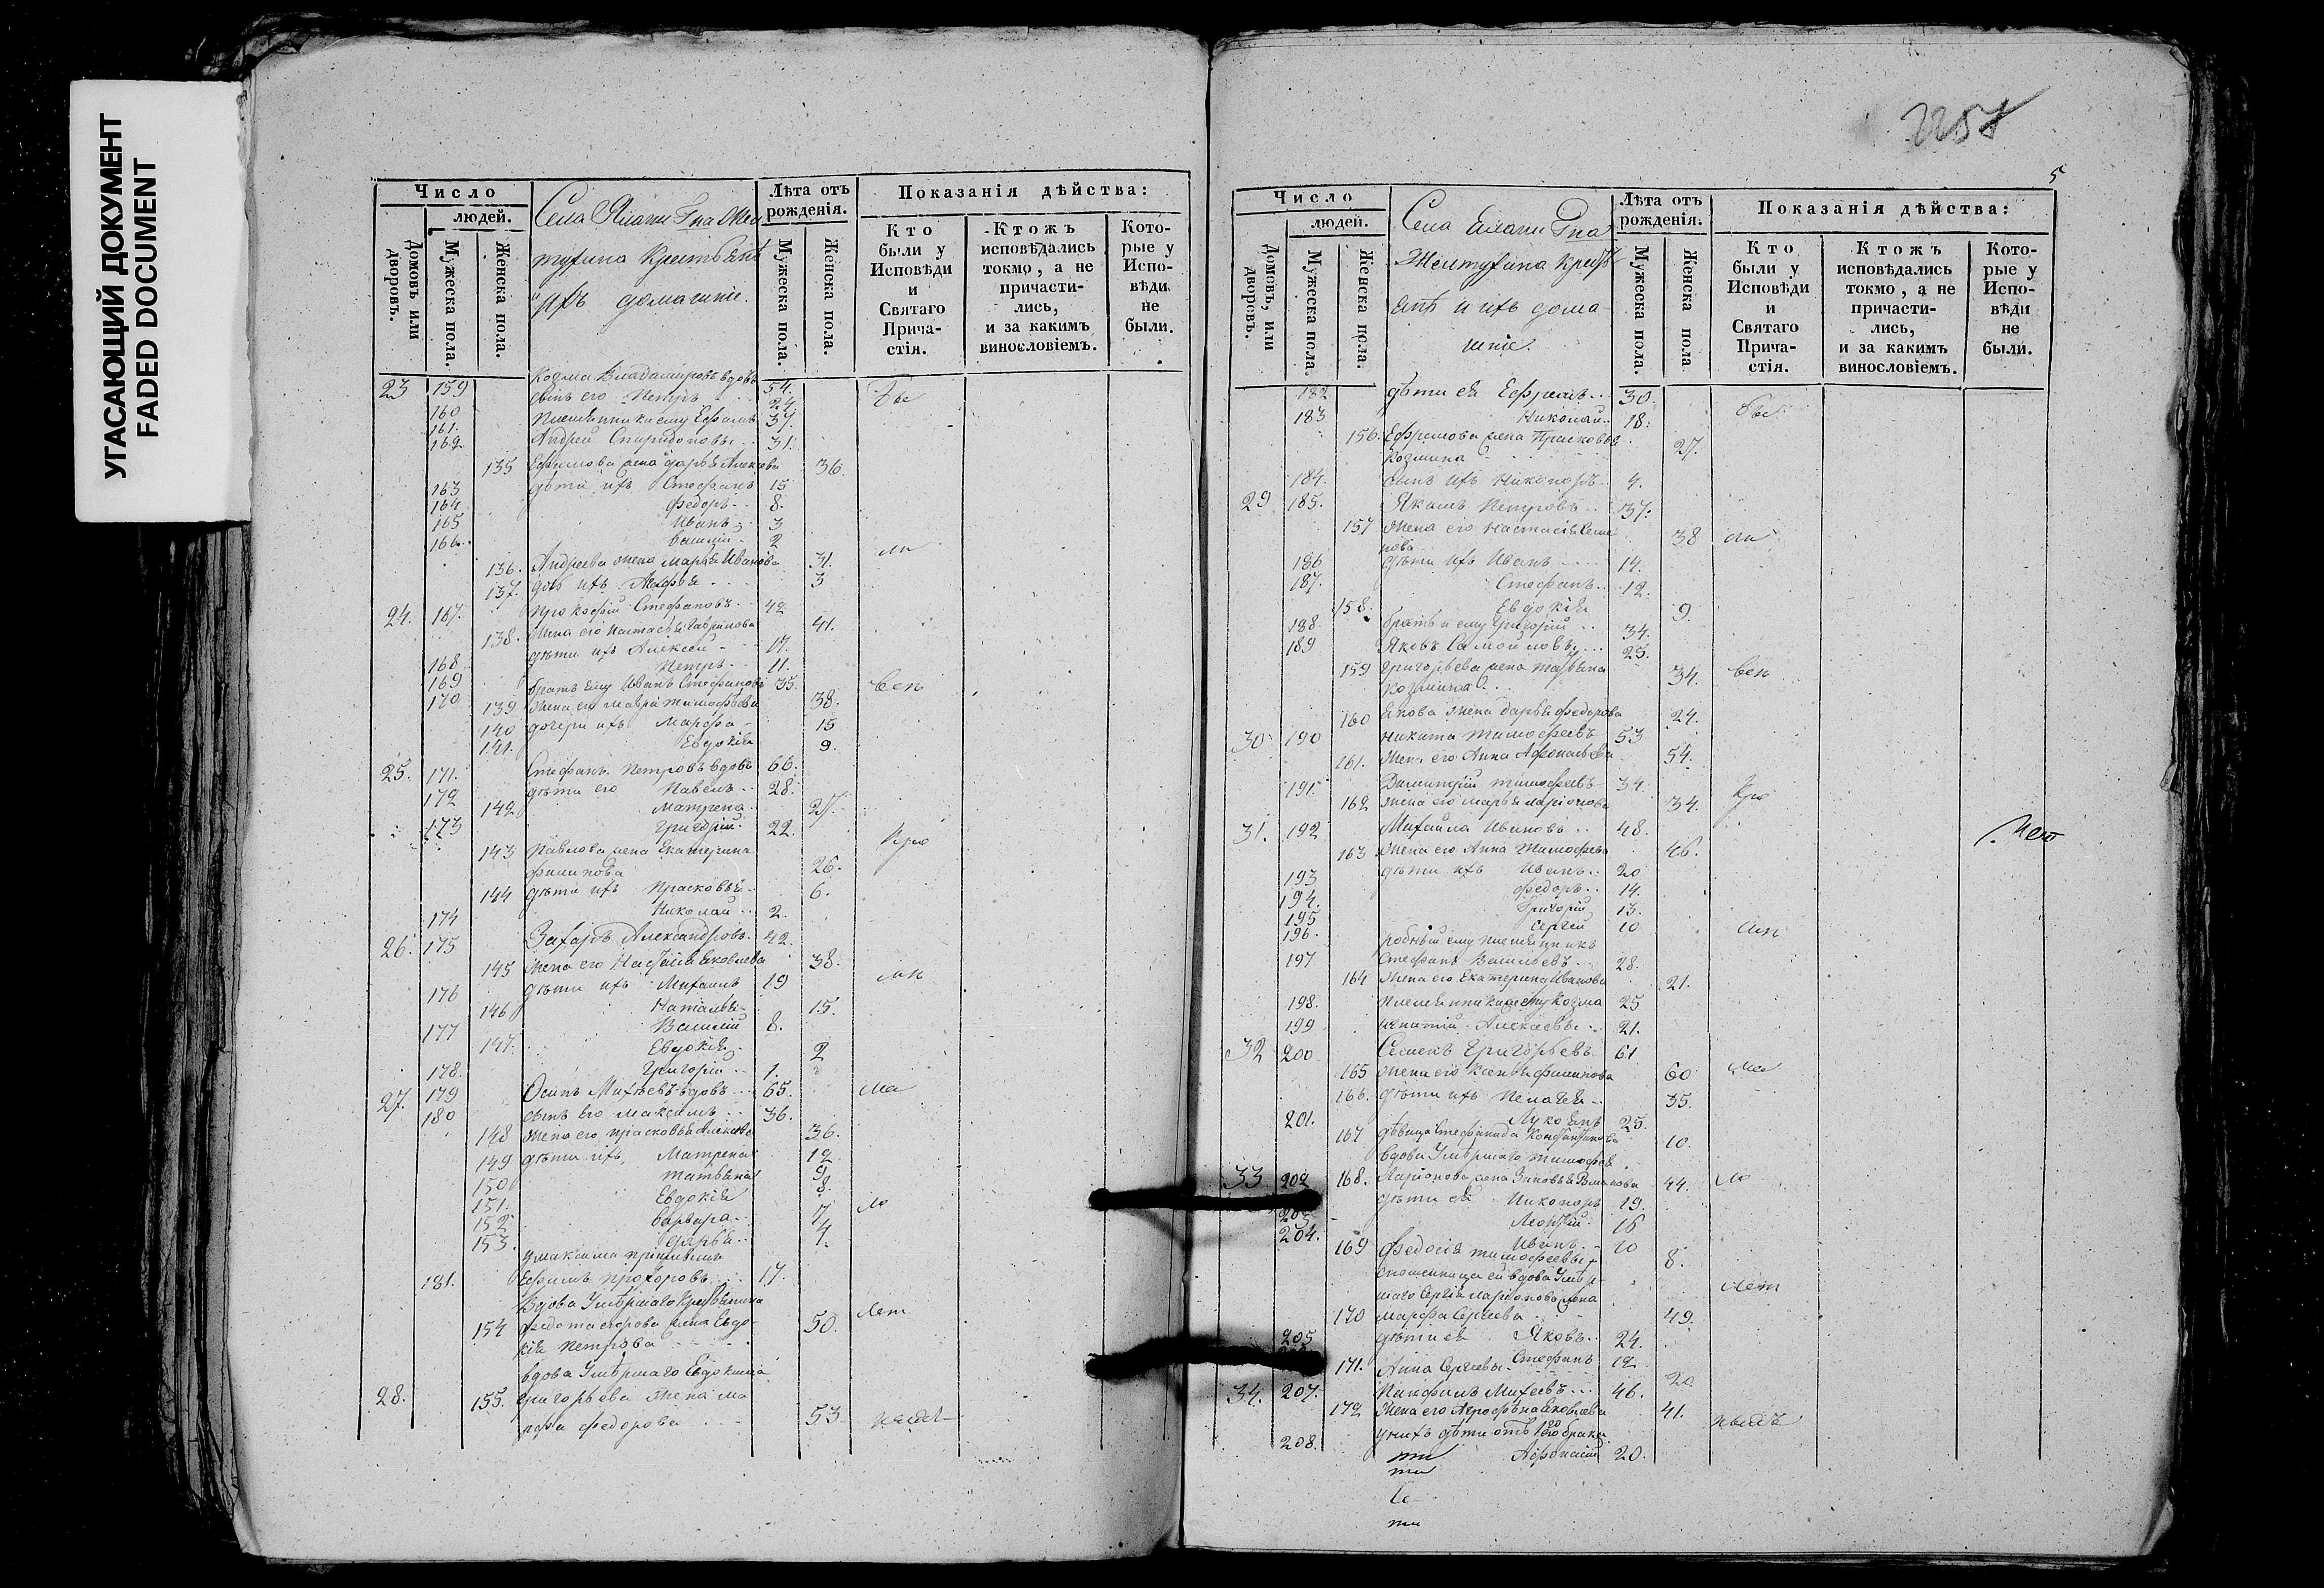 УГАСАЮЩИЙ ДОКУМЕНТ
FADED DOCUMENT
Число
людей.
Домовъ или дворовъ.
Мужеска пола.
Женска пола.
Села Елани Гна Жел
тухина Крестьянѣ
и ихъ домашніе.
Лѣта отъ рожденія.
Мужеска пола.
Женска пола.
Показанія дѣйства:
Кто были у Исповѣди и Святаго Прича-стія.
Ктожъ исповѣдались токмо, а не причасти-лись, и за какимъ винословіемъ.
Кото-рые у Испо-вѣди не были.
23 159 Козма Владимировъ вдовъ 54. бы
160 сынъ его Петръ 24
161. Племянники ему Ефимъ 37.
162 Андрей Спиридоновы 31.
135 Ефимова жена Дарья 36.
163 дѣти ихъ Стефанъ 15
164 Федоръ 8.
165 Иванъ 3
166. Василій 2
ли
136. Андреева жена Марья Иванова 31.
137. дочь ихъ 3
24. 167. Прокофій Стефановъ 42
138. жена его Настасья Гаврилова 41.
168 дѣти ихъ Алексѣй 17.
169 Петръ 11.
170 братъ ему Иванъ Стефановъ 35. всѣ
139 жена его Мавра Тимофѣева 38.
140 дочери ихъ Марфа 15
141. Евдокія 9.
25. 171. Стефанъ Петровъ вдовъ 66.
172 дѣти его Павелъ 28.
142 Матрена 27.
173 Григорій 22.
кро
143 Павлова жена Екатерина
Филипова 26.
144 дѣти ихъ Прасковья 6.
174 Николай 2.
26. 175 Захаръ Александровъ 42.
145 жена его Настасья Яковлева 38.
176 дѣти ихъ Михаилъ 19
146 Наталья 15.
177 Василій 8.
147. Евдокія 2
178. Григорій 1.
27. 179 Осипъ Михѣевъ вдовъ 65. ма
180 сынъ его Максимъ 36.
148 жена его Прасковья 36.
149 дѣти ихъ Матрена 12
150 Татьяна 9
151. Евдокія 8.
ло
152 Варвара 7
153. Дарья 4.
у Максима
181. Ефимъ Прохоровъ 17.
Вдова Умѣршаго Крестьянина
лет
154 Федота Егорова жена Евдо-
кія Петрова 50.
вдова Умѣршаго Евдокима
28. 155. Григорьева жена Ма
рфа Федорова 53.
2257
5
Число
людей.
Домовъ, или дворевъ.
Мужеска пола.
Женска пола.
Села Елани Гна
Желтухина Крестъ
янѣ и ихъ дома
шніе.
Лѣта отъ рожденія.
Мужеска пола.
Женска пола
Показанія дѣйства:
Кто были у Исповѣди и Святаго Прича-стія.
Ктожъ исповѣдались токмо, а не причасти-лись, и за какимъ винословіемъ.
Кото-рые у Испо-вѣди не были.
182 дѣти ея Ефремъ 30.
бы
183 Николай 18.
156. Ефремова жена Прасковья
Козмина 27.
184. сынъ ихъ Никоноръ 4.
29 185. Якимъ Петровъ 37.
157 жена его Настасія 38
186 дѣти ихъ Иванъ 14.
187. Стефанъ 12.
158. Евдокія 9.
188 братья ему Григорій 34.
189 Яковъ Самойловы 23.
159 Григорьева жена Татьяна
Козмина 34. всѣ
160 Якова жена Дарья Федорова 24.
30. 190 Никита Тимофеевъ 53
161. жена его Анна 54.
191. Димитрій Тимофеевъ 34.
кро
162 жена его Марья Ларіонова 34.
31. 192 Михайла Ивановъ 48.
163 жена его Анна Тимофеева 46.
193 дѣти ихъ Иванъ 20
194. Федоръ 14.
195 Григорій 13.
196. Сергѣй 10
родный ему племянникъ
197 Стефанъ Васильевъ 28.
164 жена его Екатерина Иванова 21.
198. племянники ему Козма 25
199 Игнатій Алексѣевы 21.
32 200 Семенъ Григорьевъ 61
165 жена его Ксенья Филипова 60 ма
166. дѣти ихъ Пелагея 35.
201. Лукоянъ 25.
167 дѣвица Стефанида 10.
вдова Умѣршаго Тимофея
33 202 168. Ларіонова жена Зиновья 44. ло
дѣти ея Никоноръ 19.
203 16
204. Иванъ 10
169 Федосія Тимофеевы 8.
вдова Умѣр-
шаго Сергѣя Ларіонова жена лет
170 Марфа Сергѣева 49.
205 дѣти ея Яковъ 24.
Стефанъ 12
171. Анна Сергѣевы 20.
34. 207. Панфилъ Михѣевъ 46.
172 жена его Яковлева 41.
у нихъ дѣти отъ 1го брака
208. Афонасій 20.
ти
ти
ти